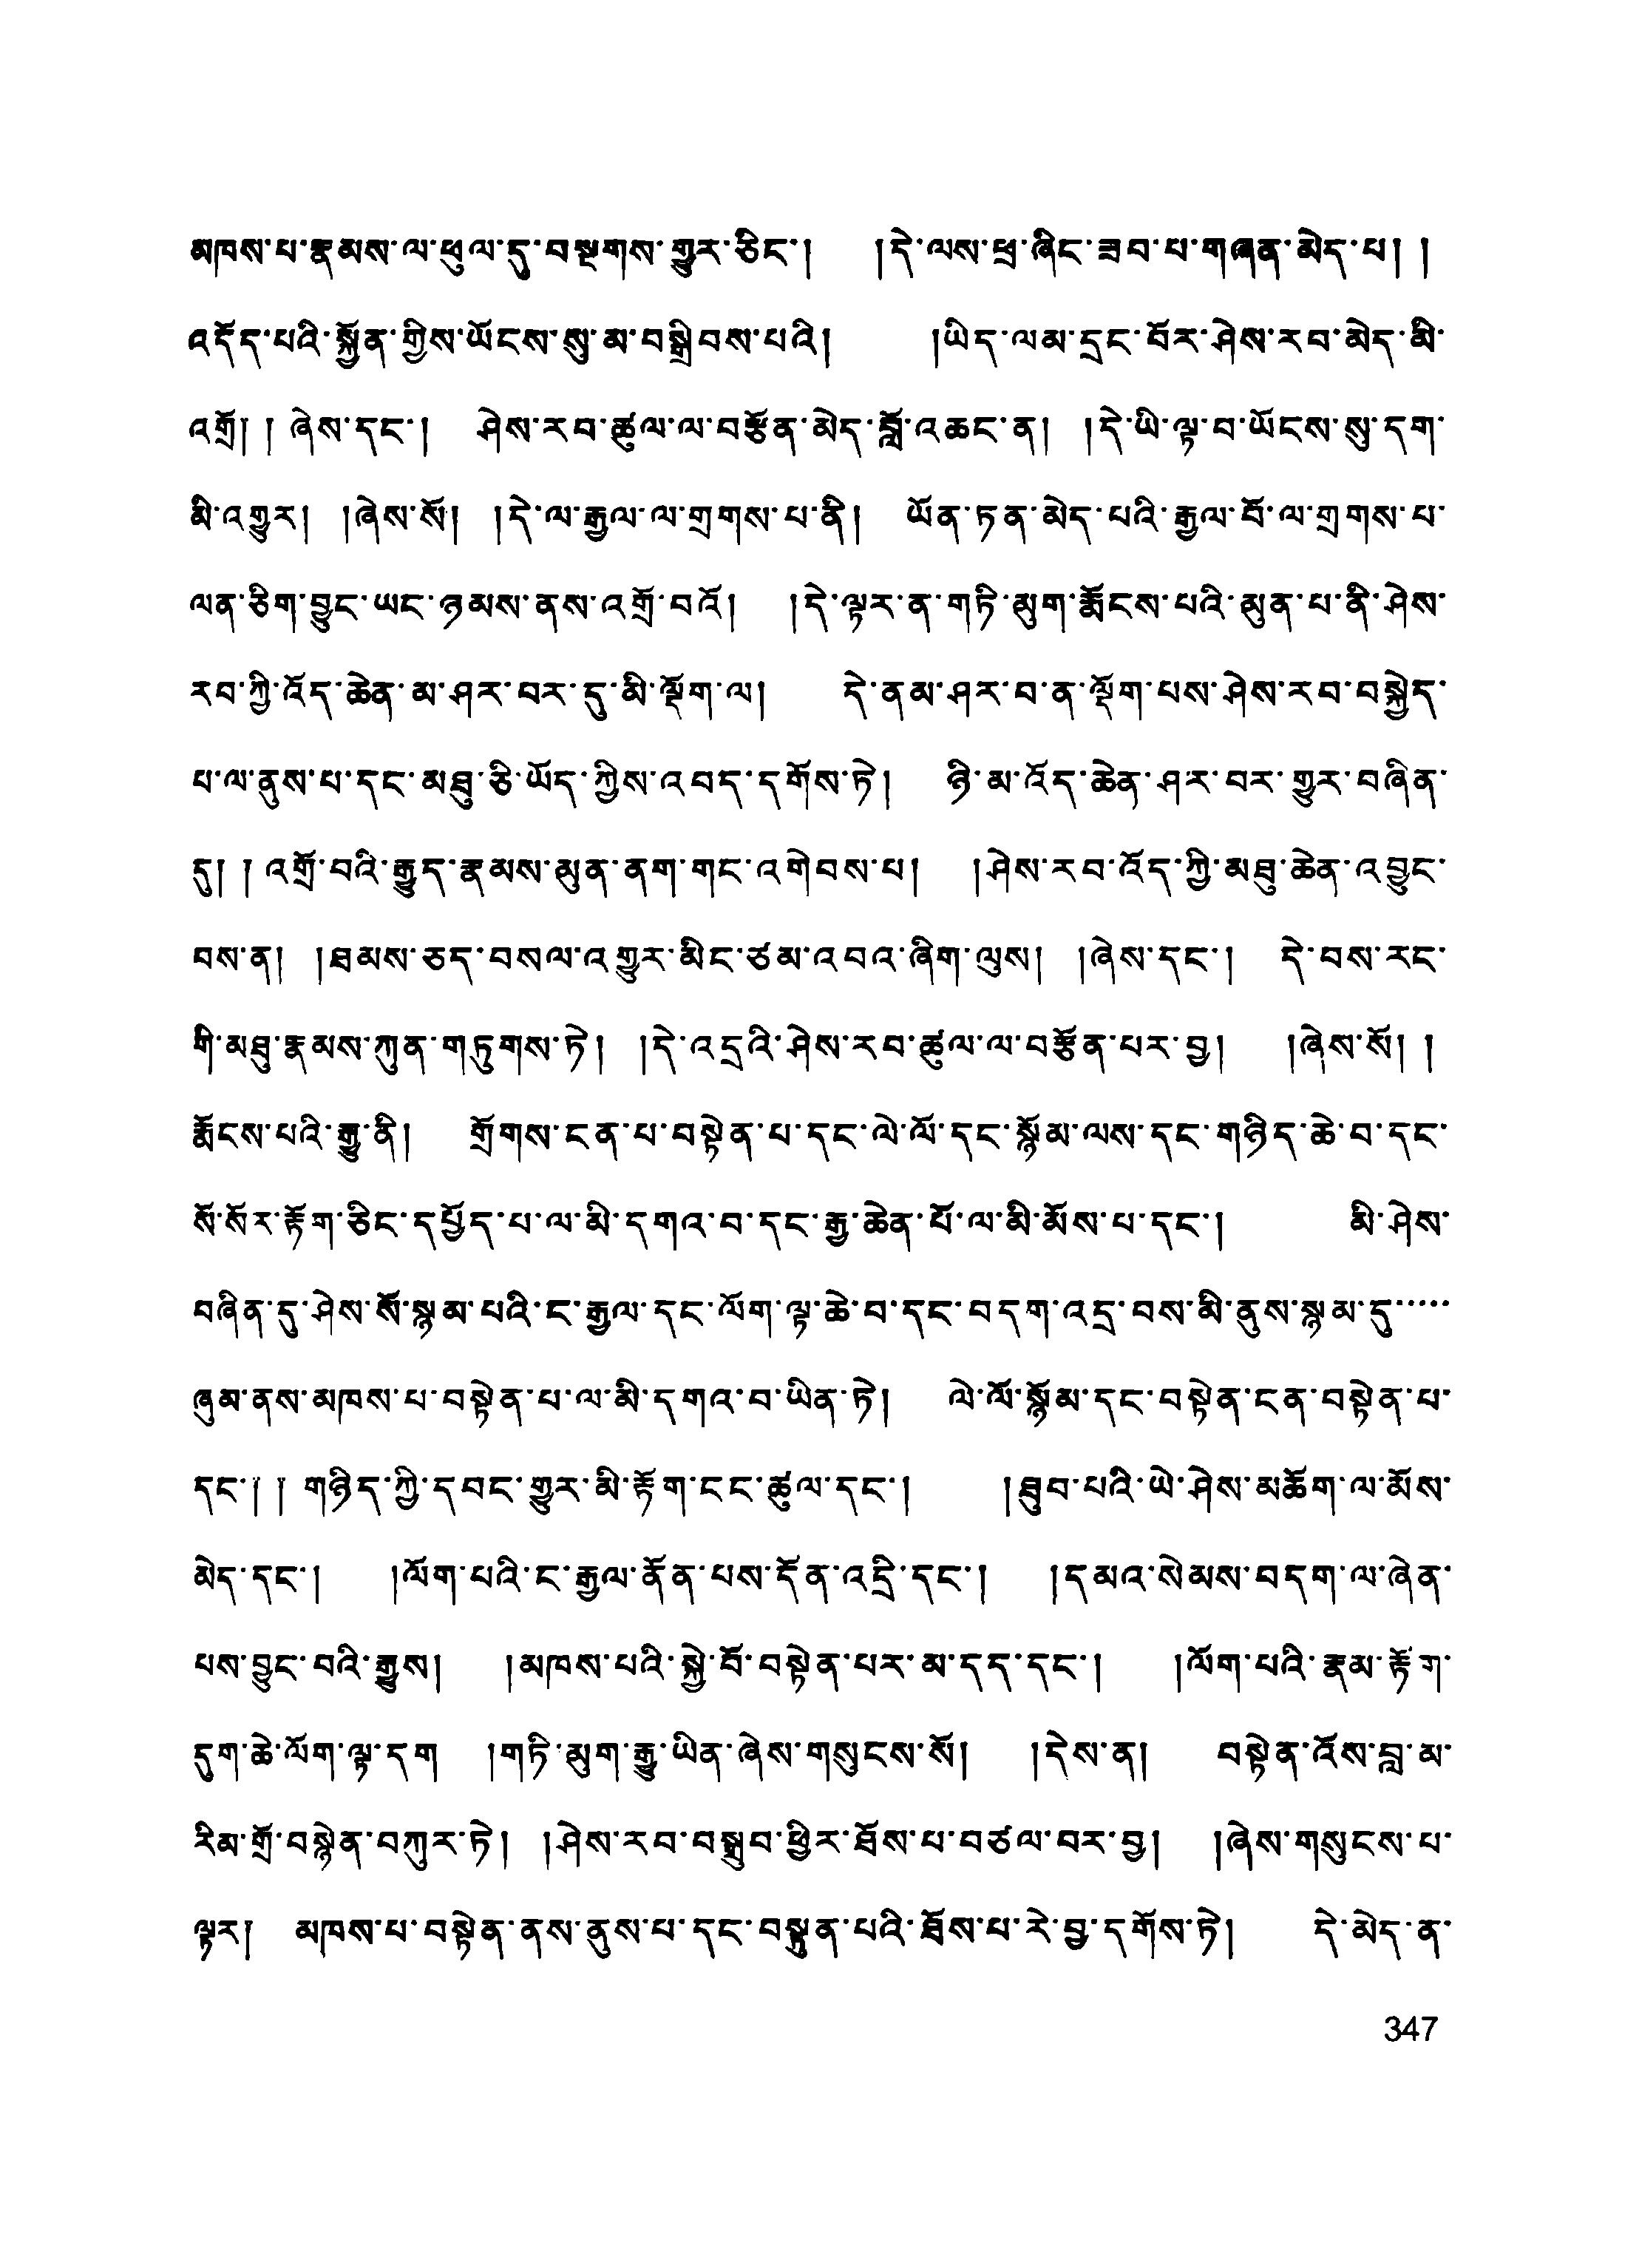 མཁས་པ་རྣམས་ལ་ཕུལ་དུ་བསྔགས་གྱུར་ཅིང་། །དེ་ལས་ཕྲ་ཞིང་ཟབ་པ་གཞན་མེད་པ། །
འདོད་པའི་སྐྱོན་གྱིས་ཡོངས་སུ་མ་བསྒྲིབས་པའི། །ཡིད་ལམ་དྲང་བོར་ཤེས་རབ་མེད་མི་
འགྲོ། །ཞེས་དང་། ཤེས་རབ་ཚུལ་ལ་བརྩོན་མེད་བློ་འཆང་ན། །དེ་ཡི་ལྟ་བ་ཡོངས་སུ་དག་
མི་འགྱུར། །ཞེས་སོ། །དེ་ལ་རྒྱལ་ལ་གྲགས་པ་ནི། ཡོན་ཏན་མེད་པའི་རྒྱལ་བོ་ལ་གྲགས་པ་
ལན་ཅིག་བྱུང་ཡང་ཉམས་ནས་འགྲོ་བའོ། །དེ་ལྟར་ན་གཏི་མུག་རྨོངས་པའི་མུན་པ་ནི་ཤེས་
རབ་ཀྱི་འོད་ཆེན་མ་ཤར་བར་དུ་མི་ལྡོག་ལ། དེ་ནམ་ཤར་བ་ན་ལྡོག་པས་ཤེས་རབ་བསྐྱེད་
པ་ལ་ནུས་པ་དང་མཐུ་ཅི་ཡོད་ཀྱིས་འབད་དགོས་ཏེ། ཉི་མ་འོད་ཆེན་ཤར་བར་གྱུར་བཞིན་
དུ། །འགྲོ་བའི་རྒྱུད་རྣམས་མུན་ནག་གང་འགེབས་པ། །ཤེས་རབ་འོད་ཀྱི་མཐུ་ཆེན་འབྱུང་
བས་ན། །ཐམས་ཅད་བསལ་འགྱུར་མིང་ཙམ་འབའ་ཞིག་ལུས། །ཞེས་དང་། དེ་བས་རང་
གི་མཐུ་རྣམས་ཀུན་གཏུགས་ཏེ། །དེ་འདྲའི་ཤེས་རབ་ཚུལ་ལ་བརྩོན་པར་བྱ། །ཞེས་སོ། །
རྨོངས་པའི་རྒྱུ་ནི། གྲོགས་ངན་པ་བསྟེན་པ་དང་ལེ་ལོ་དང་སྙོམ་ལས་དང་གཉིད་ཆེ་བ་དང་
སོ་སོར་རྟོག་ཅིང་དཔྱོད་པ་ལ་མི་དགའ་བ་དང་རྒྱ་ཆེན་པོ་ལ་མི་མོས་པ་དང་། མི་ཤེས་
བཞིན་དུ་ཤེས་སོ་སྙམ་པའི་ང་རྒྱལ་དང་ལོག་ལྟ་ཆེ་བ་དང་བདག་འདྲ་བས་མི་ནུས་སྙམ་དུ་་་་་་
ཞུམ་ནས་མཁས་པ་བསྟེན་པ་ལ་མི་དགའ་བ་ཡིན་ཏེ། ལེ་ལོ་སྙོམ་དང་བསྟེན་ངན་བསྟེན་པ་
དང་། །གཉིད་ཀྱི་དབང་གྱུར་མི་རྟོག་ངང་ཚུལ་དང་། །ཐུབ་པའི་ཡེ་ཤེས་མཆོག་ལ་མོས་
མེད་དང་། །ལོག་པའི་ང་རྒྱལ་ནོན་པས་དོན་འདྲི་དང་། །དམའ་སེམས་བདག་ལ་ཞེན་
པས་བྱུང་བའི་རྒྱུས། །མཁས་པའི་སྐྱེ་བོ་བསྟེན་པར་མ་དད་དང་། །ལོག་པའི་རྣམ་རྟོག་
དུག་ཆེ་ལོག་ལྟ་དག །གཏི་མུག་རྒྱུ་ཡིན་ཞེས་གསུངས་སོ། །དེས་ན། བསྟེན་འོས་བླ་མ་
རིམ་གྲོ་བསྙེན་བཀུར་ཏེ། །ཤེས་རབ་བསྒྲུབ་ཕྱིར་ཐོས་པ་བཙལ་བར་བྱ། །ཞེས་གསུངས་པ་
ལྟར། མཁས་པ་བསྟེན་ནས་ནུས་པ་དང་བསྟུན་པའི་ཐོས་པ་རེ་བྱ་དགོས་ཏེ། དེ་མེད་ན་
347